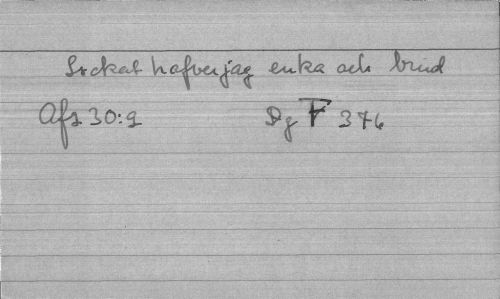 Lockat hafver jag enka och brud
Afz 30:9 Dg F 376